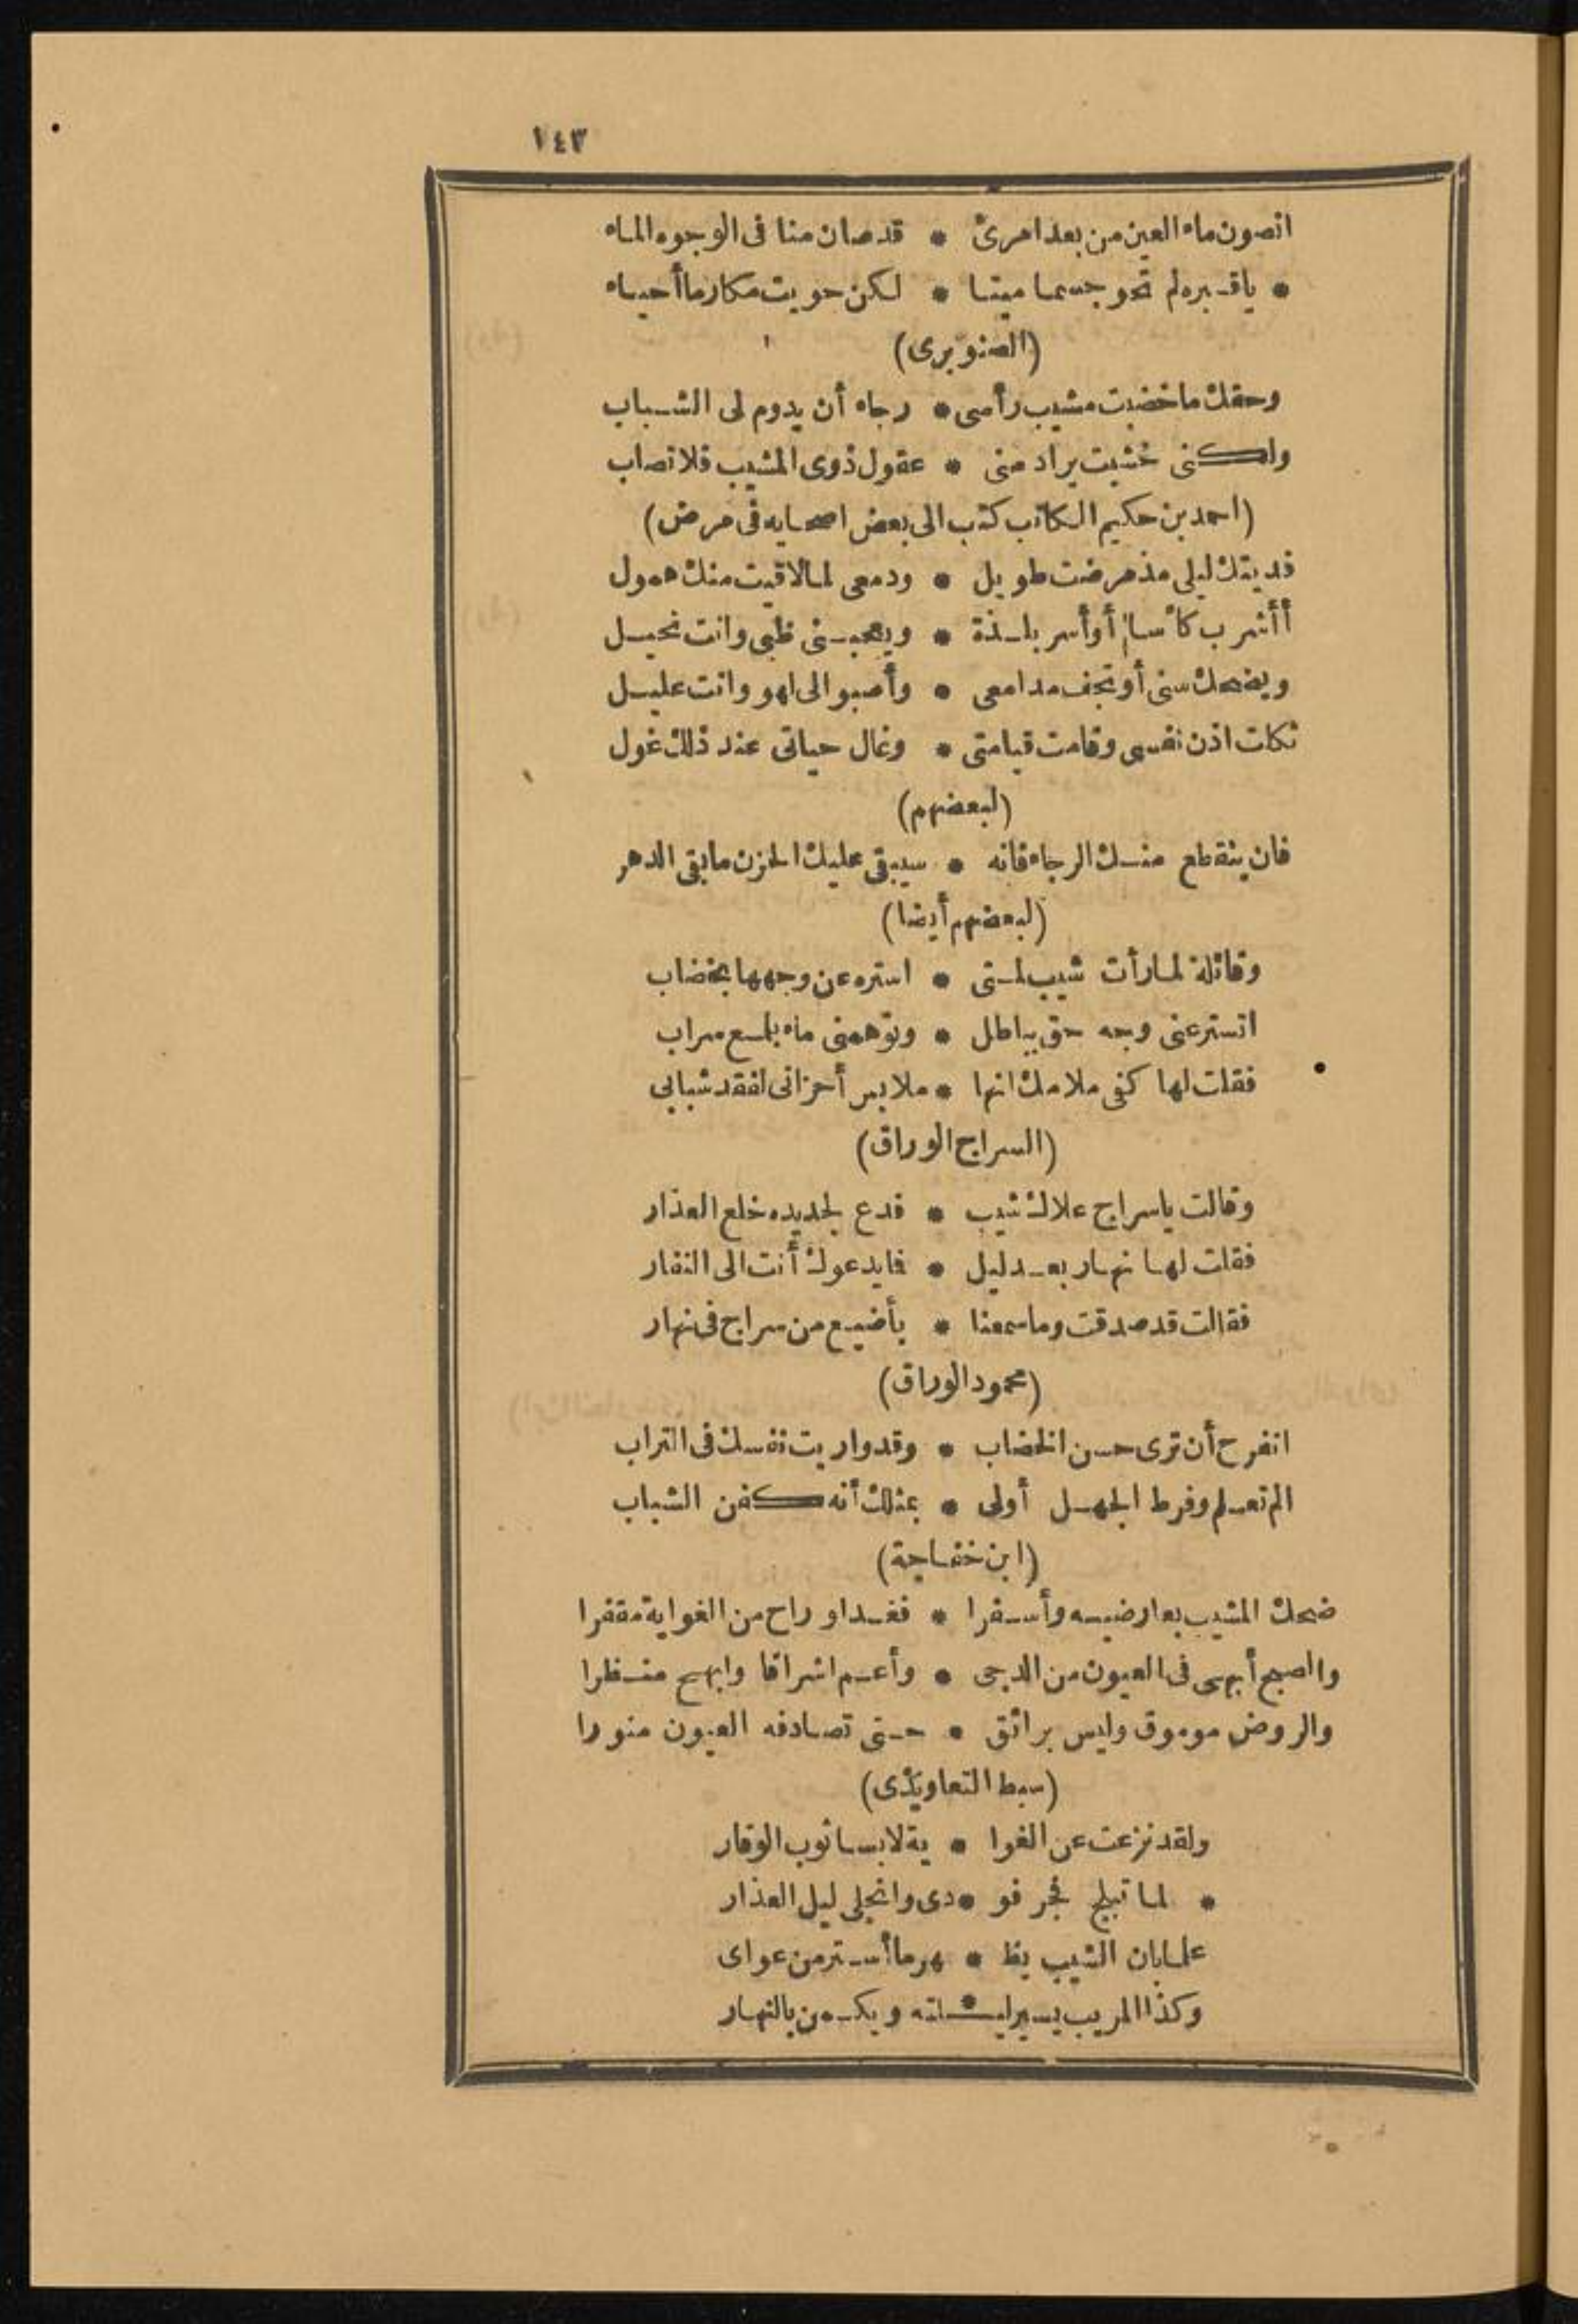 ١٤٣
اتصون ماء العين من بعد امرئ * قد صان منا فى الوجوه الماء
* ياقبره لم تحو جسما ميتا * لكن حويت مكارما أحياء
(الصنوبرى)
وحقك ما خضبت مشيب رأسى * رجاء أن يدوم لى الشباب
ولكنى خشيت يراد منى * عقول ذوى المشيب فلا تصاب
(احمد بن حكيم الكاتب كتب الى بعض اصحابه فى مرض)
فديتك ليلى مذ مرضت طويل * ودمعى لما لاقيت منك همول
أأشرب كأسا أو أسر بلذة * ويعجبنى ظبى وانت نحيل
ويضحك سنى أو تجف مدامعى * وأصبو الى لهو وانت عليل
ثكلت اذن نفسى وقامت قيامتى * وغال حياتى عند ذلك غول
(لبعضهم)
فان ينقطع منك الرجاء فانه * سيبقى عليك الحزن ما بقى الدهر
(لبعضهم أيضا)
وقائلة لما رأت شيب لمتى * استره عن وجهها بخضاب
اتستر عنى وجه حق بباطل * وتوهمنى ماء بلمع سراب
فقلت لها كفى ملامك انها * ملابس أحزانى لفقد شبابى
(السراج الوراق)
وقالت ياسراج علاك شيب * فدع لجديده خلع العذار
فقلت لها نهار بعد ليل * فما يدعوك أنت الى النفار
فقالت قد صدقت وما سمعنا * بأضيع من سراج فى نهار
(محمود الوراق)
اتفرح أن ترى حسن الخضاب * وقد واريت نفسك فى التراب
الم تعلم وفرط الجهل أولى * بمثلك أنه كفن الشباب
(ابن خفاجة)
ضحك المشيب بعارضيه وأسفرا * فغدا وراح من الغواية مقفرا
والصبح أبهى فى العيون من الدجى * وأعم اشراقا وابهج منظرا
والروض موموق وليس برائق * حتى تصادفه العيون منورا
(سبط التعاويذى)
ولقد نزعت عن الغوا * ية لابسا ثوب الوقار
* لما تبلج فجر فو * دى وانجلى ليل العذار
علما بان الشيب يظ * هر ما أستر من عواى
وكذا المريب يسير ليـ * ـلته ويكمن بالنهار